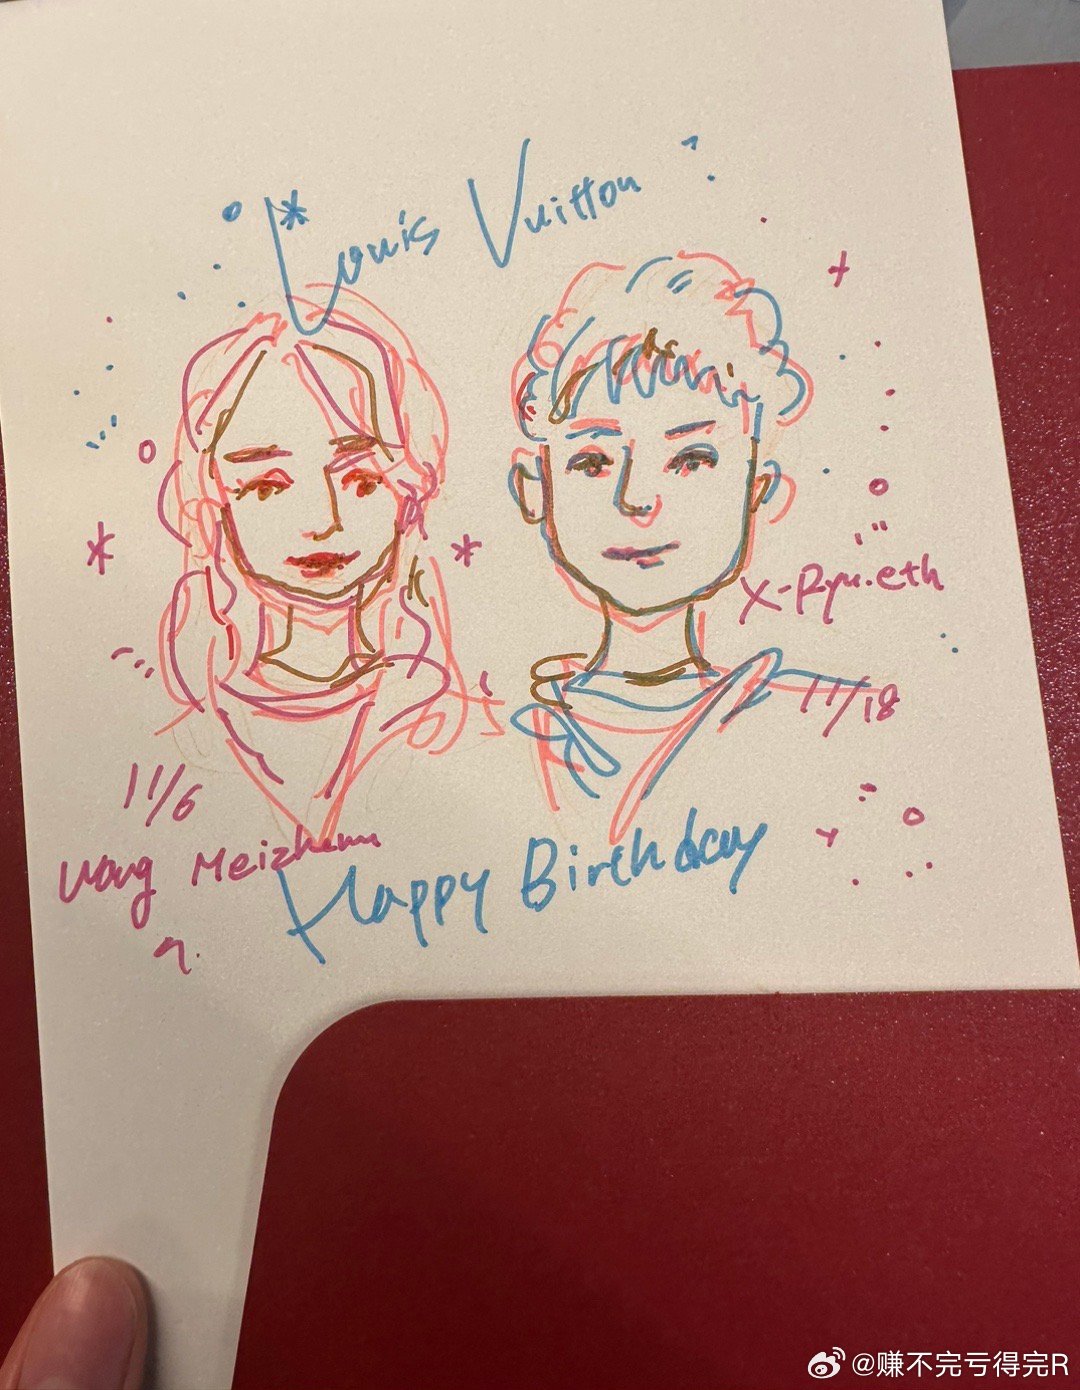 Louis Vuitton
X-Ryu.eth
11/18
11/6
Wang Meizhen
Happy Birthday
@赚不完亏得完R